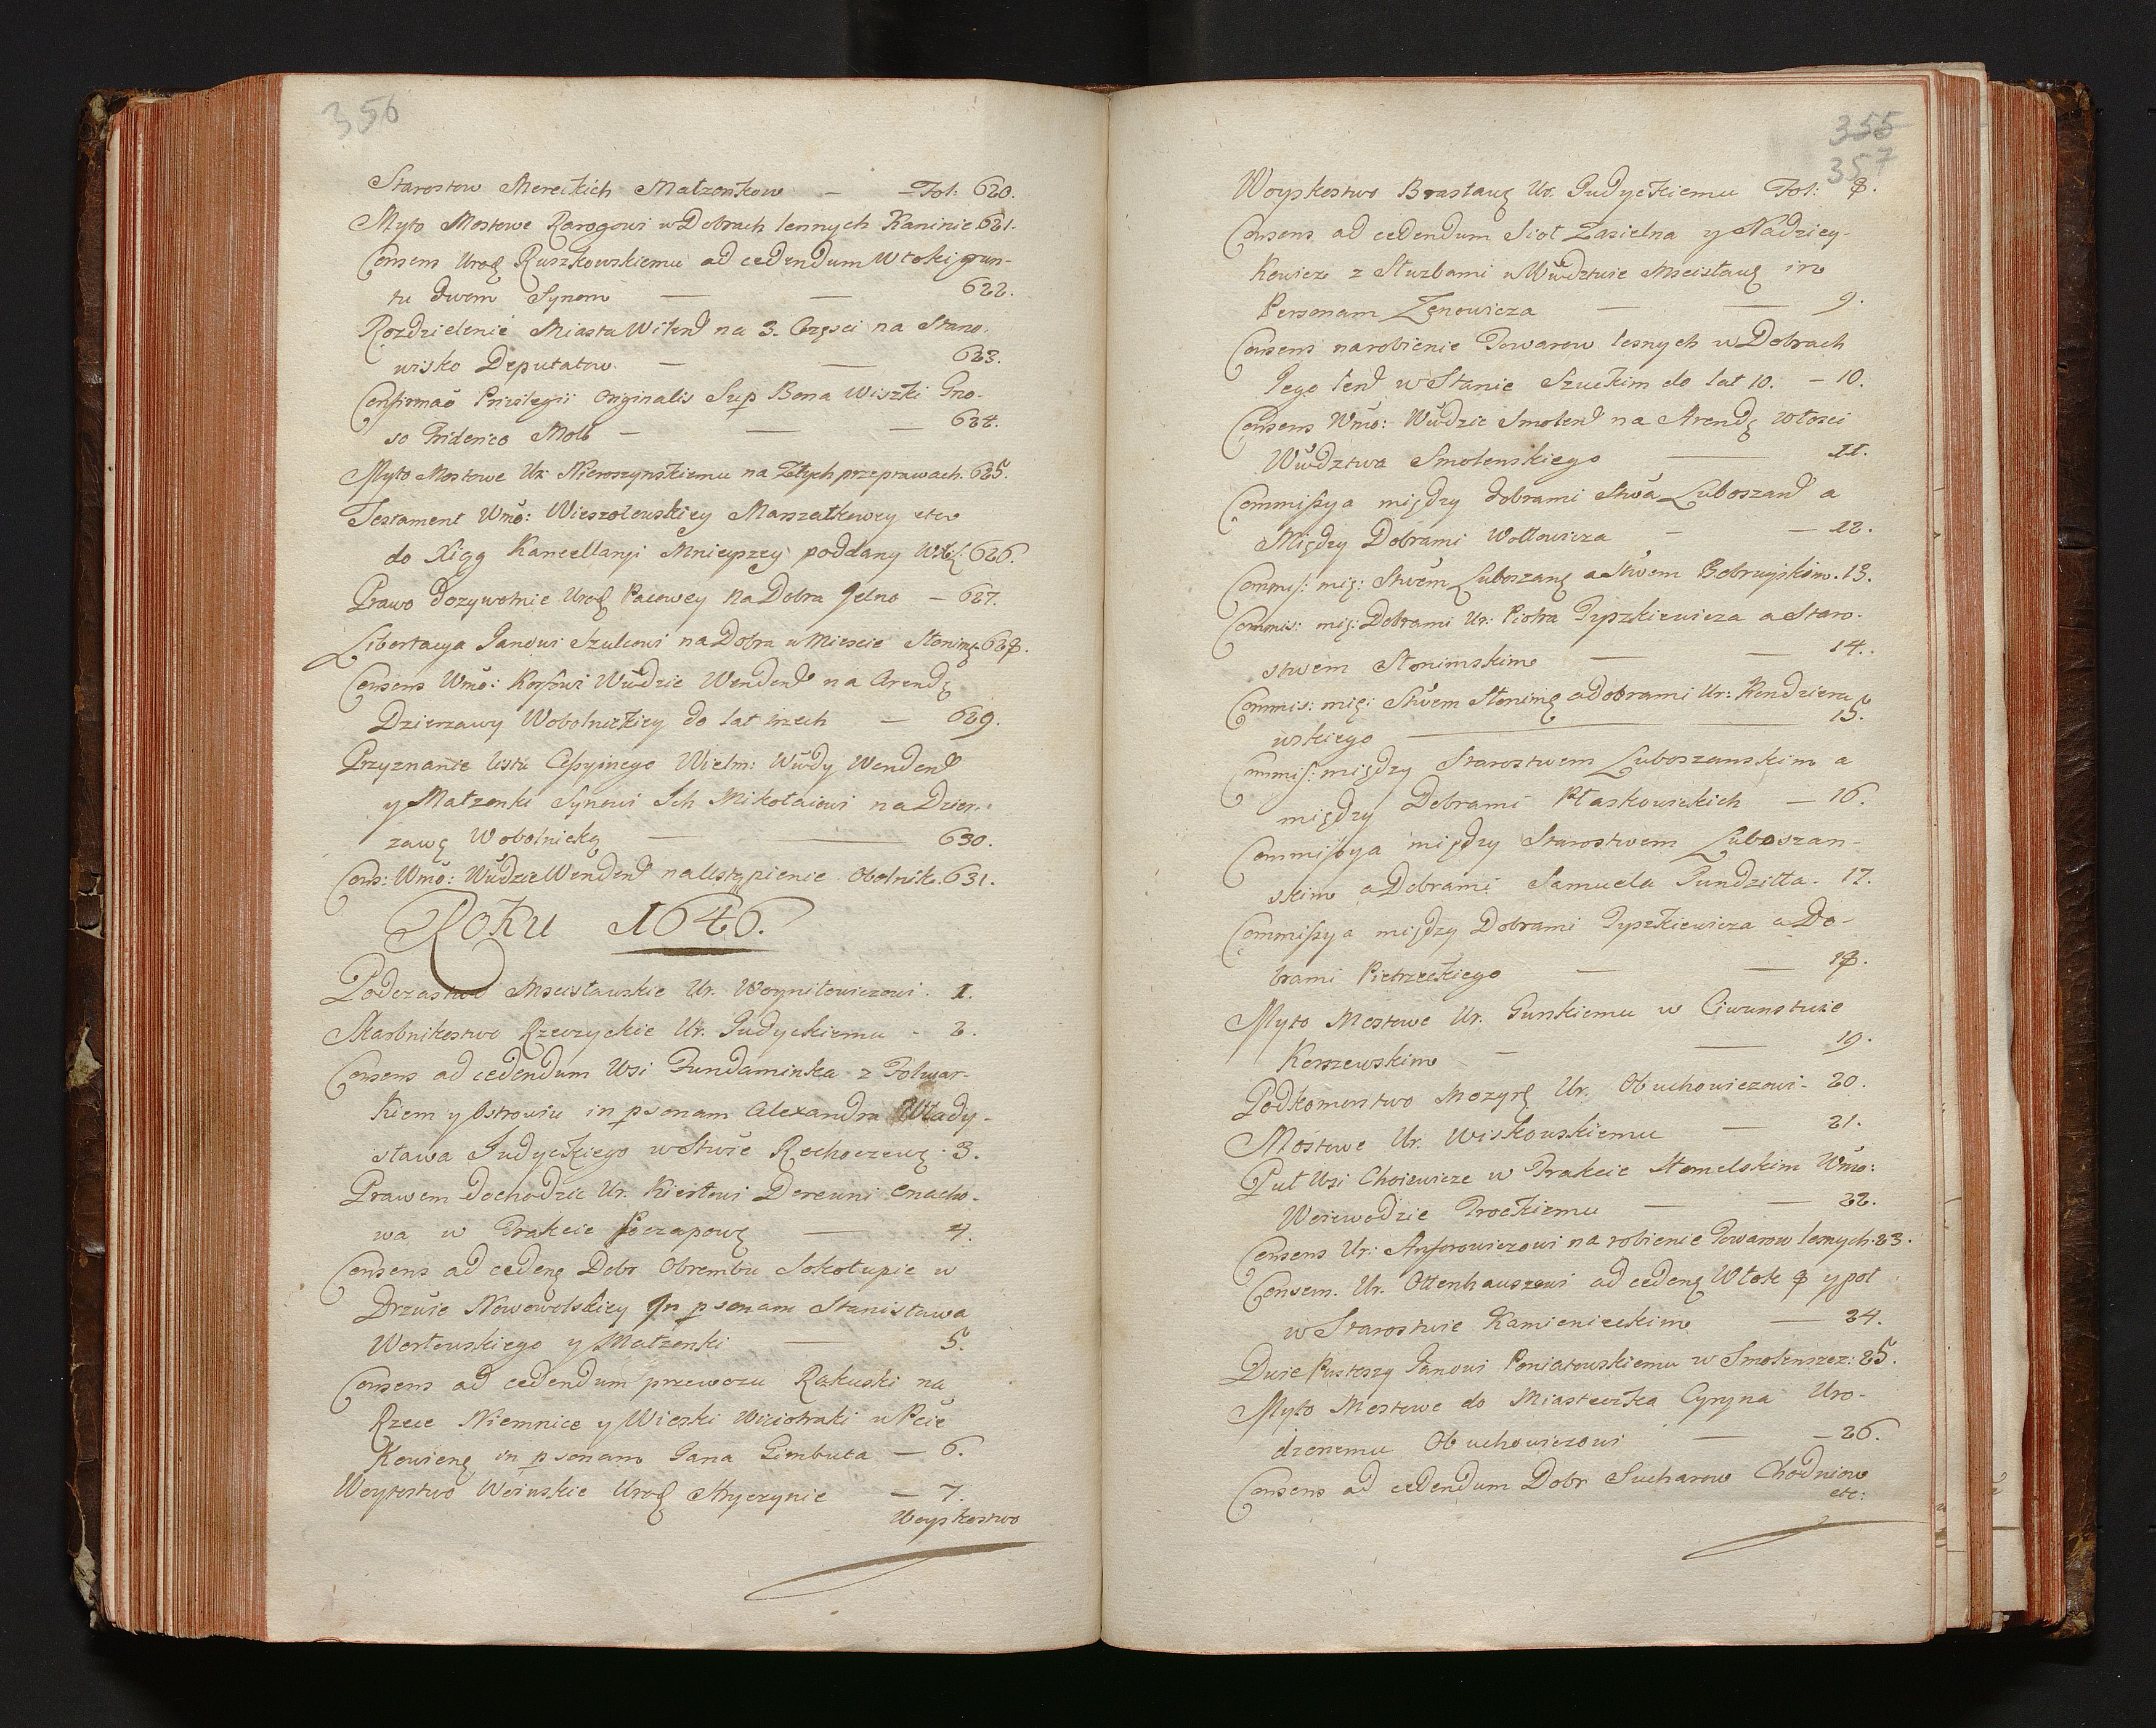 356
Starostow Mereckich Małzonkow — — Fol: 620.
Myto Mostowe Rarogowi w Dobrach lennych Kaninie 621.
Consens Urodz Ruszkowskiemu ad cedendum Włoki grun-
tu dwom Synom — — 622.
Rozdzielenie Miasta Wilend na 3. Częsci na Stano-
wisko Deputatow — — 623.
Confirmaõ Privilegii Originalis Sup Bona Wiszki Gno-
so Friderico Moll — — — 624.
Myto Mostowe Ur: Nieroszynskiemu na Złych przeprawach. 625.
Testament Wmo: Wieszolowskiey Marszałkowey etc
do Xiąg Kancellaryi Mnieyszey poddany 626.
Prawo dozywotnie Urodz Pacowey na Dobra Jelno — 627.
Libertacya Janowi Szulcowi na Dobra w Miescie Słonimę 628.
Consens Wmo: Korffowi Wwdzie Wendend na Arendę
Dzierzawy Wobolnickiey do lat trzech — 629.
Przyznanie listu Cessyinego Wielm: Wwdy Wendend
y Małzonki Synowi Ich Mikołaiowi na Dzier-
zawę Wobolnicką — — 630.
Cons: Wmo: Wwdzie Wendend na Ustąpienie Obolnik. 631.
Roku 1646.
Podczastwo Mscisławskie Ur. Woyniłowiczowi. 1.
Skarbnikostwo Rzeczyckie Ur. Judyckiemu - 2.
Consens ad cedendum Wsi Fundaminka z Folwar-
kiem y Ostrowiu in psonam Alexandra Włady-
sława Judyckiego w Stwie Rohoczewę. 3.
Prawem dochodzic Ur. Kierłowi Derewni Onacho-
wa w Trakcie Poczapowę — 4.
Consens ad cedenę Dobr Obrembu Sokołupie w
Drzwie Nowowolskiey In psonam Stanisława
Worłowskiego y Małzonki — 5.
Consens ad cedendum przewozu Rakuski na
Rzece Niemnice y Wioski Wiciotraki w Pcie
Kowienę in psonam Jana Gimbuta — 6.
Woytostwo Weinskie Urodz Hryczynie — 7.
Woyskostwo
355
357
Woyskostwo Brasławę Ur. Judyckiemu Fol: 8.
Consens ad cedendum Sioł Zasielna y Nadziey-
kowicz z Służbami w Wwdztwie Mscisławę in
Personam Zenowicza — — 9.
Consens na robienie Towarow lesnych w Dobrach
Jego lend w Stanie Szuckim do lat 10. — 10.
Consens Wmo: Wwdzie Smolend na Arendę włosci
Wwdztwa Smolenskiego — 11.
Commissya między dobrami Stwa Luboszand a
Między Dobrami Wołłowicza — — 12.
Commis: mię: Stwem Luboszanę a Stwem Bobruyskim. 13.
Commis: mię: Dobrami Ur: Piotra Tyszkiewicza a Staro-
stwem Słonimskim — — 14.
Commis: mię: Stwem Słonimę a dobrami Ur: Kendzierz
wskiego — 15.
Commis: między Starostwem Luboszanskim a
między Dobrami Płaskowickich — 16.
Commissya między Starostwem Luboszan-
skim a Dobrami Samuela Pundziłła. 17.
Commissya między Dobrami Tyszkiewicza a Do-
brami Pietrzeckiego — — 18.
Myto Mostowe Ur. Gunskiemu w Ciwunstwie
Korszewskim — — 19.
Podkomorstwo Mozyrę Ur. Obuchowiczowi - 20.
Mostowe Ur. Wiskowskiemu — 21.
Puł Wsi Choiewicze w Trakcie Homelskim Wmo:
Woiewodzie Trockiemu — — 22.
Consens Ur: Anforowiczowi na robienie Towarow lesnych. 23.
Consens. Ur. Ottenhauszowi ad cedenę Włok 8 y poł
w Starostwie Kamienieckim — 24.
Dwie Pustoszy Janowi Poniatowskiemu w Smolenszcz: 25.
Myto Mostowe do Miasteczka Cyryna Uro-
dzonemu Obuchowiczowi — — 26.
Consens ad cedendum Dobr Sucharow Chodniow
etc: